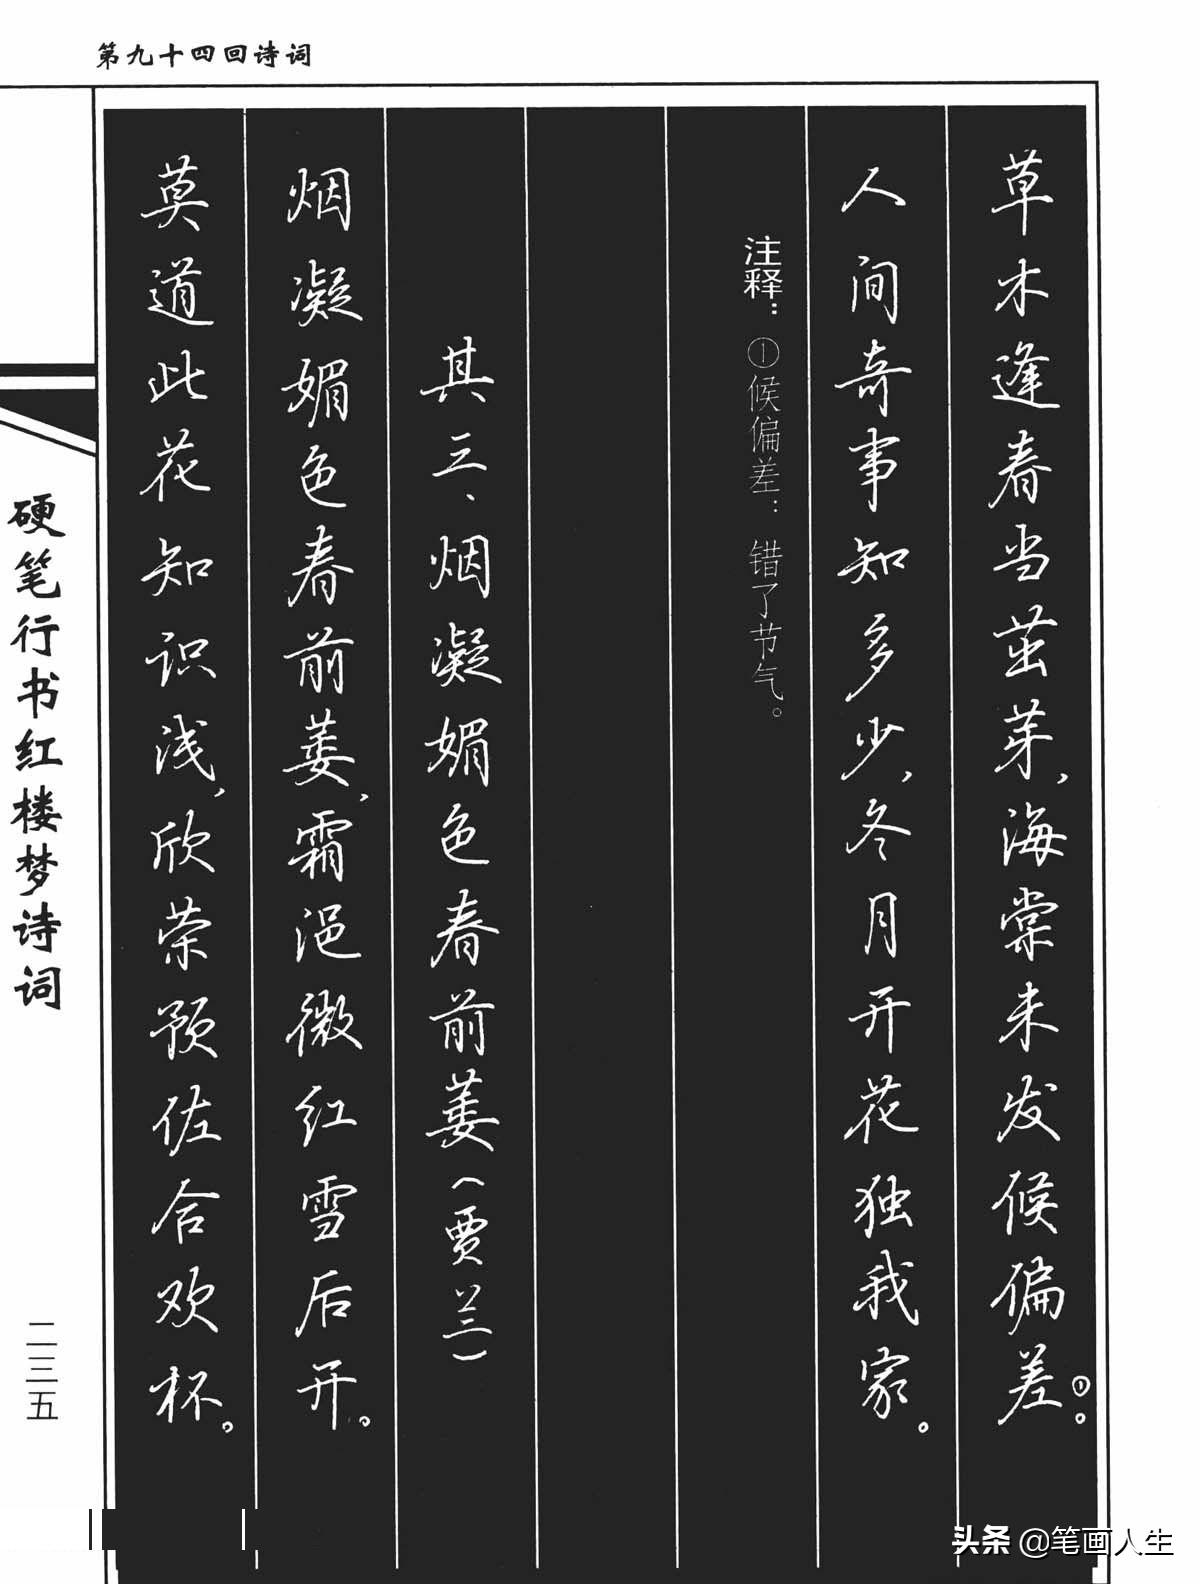 第九十四回诗词
草木逢春当茁芽，海棠未发候偏差①。
人间奇事知多少，冬月开花独我家。
注释：①候偏差：错了节气。
其三、烟凝媚色春前萎（贾兰）
烟凝媚色春前萎，霜浥微红雪后开。
莫道此花知识浅，欣荣预佐合欢杯。
硬笔行书红楼梦诗词
二三五
头条 @笔画人生